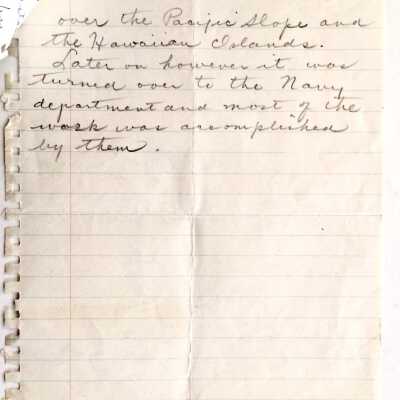 over the Pacific Slope and
the Hawaiian Islands.
Later on however it was
turned over to the Navy
department and most of the
work was accomplished
by them.